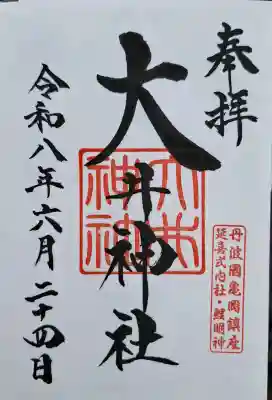 奉拝
丹波國亀岡鎮座
延喜式内社・鯉明神
大井神社
大井神社
令和八年六月二十四日